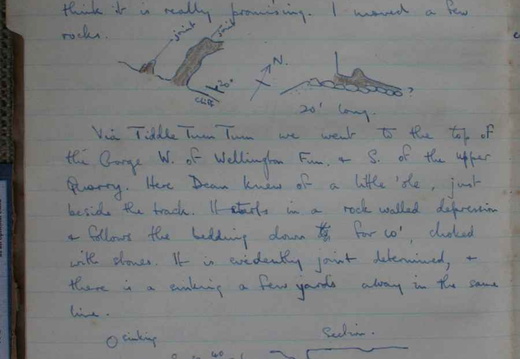 think it is really promising. I moved a few
rocks.
joint
joint
20°
cliff
N.
?
20' long.
Via Tiddle Tum Tum we went to the top of
the Gorge W. of Wellington Fm. & S. of the upper
Quarry. Here Dean knew of a little 'ole, just
beside the track. It starts in a rock walled depression
& follows the bedding down for 10', choked
with stones. It is evidently joint determined, &
there is a sinking a few yards away in the same
line.
sinking
Section.